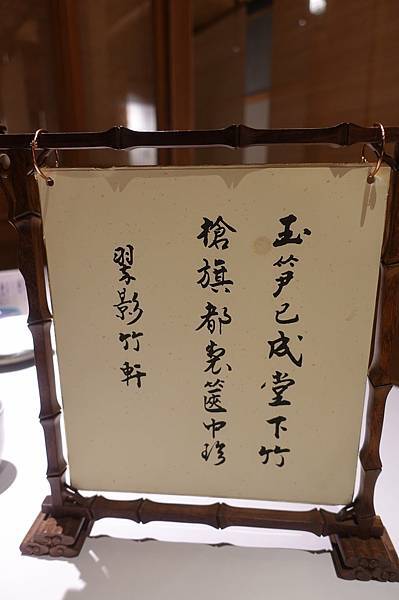 玉笋已成堂下竹
槍旗都製篋中珍
翠影竹軒